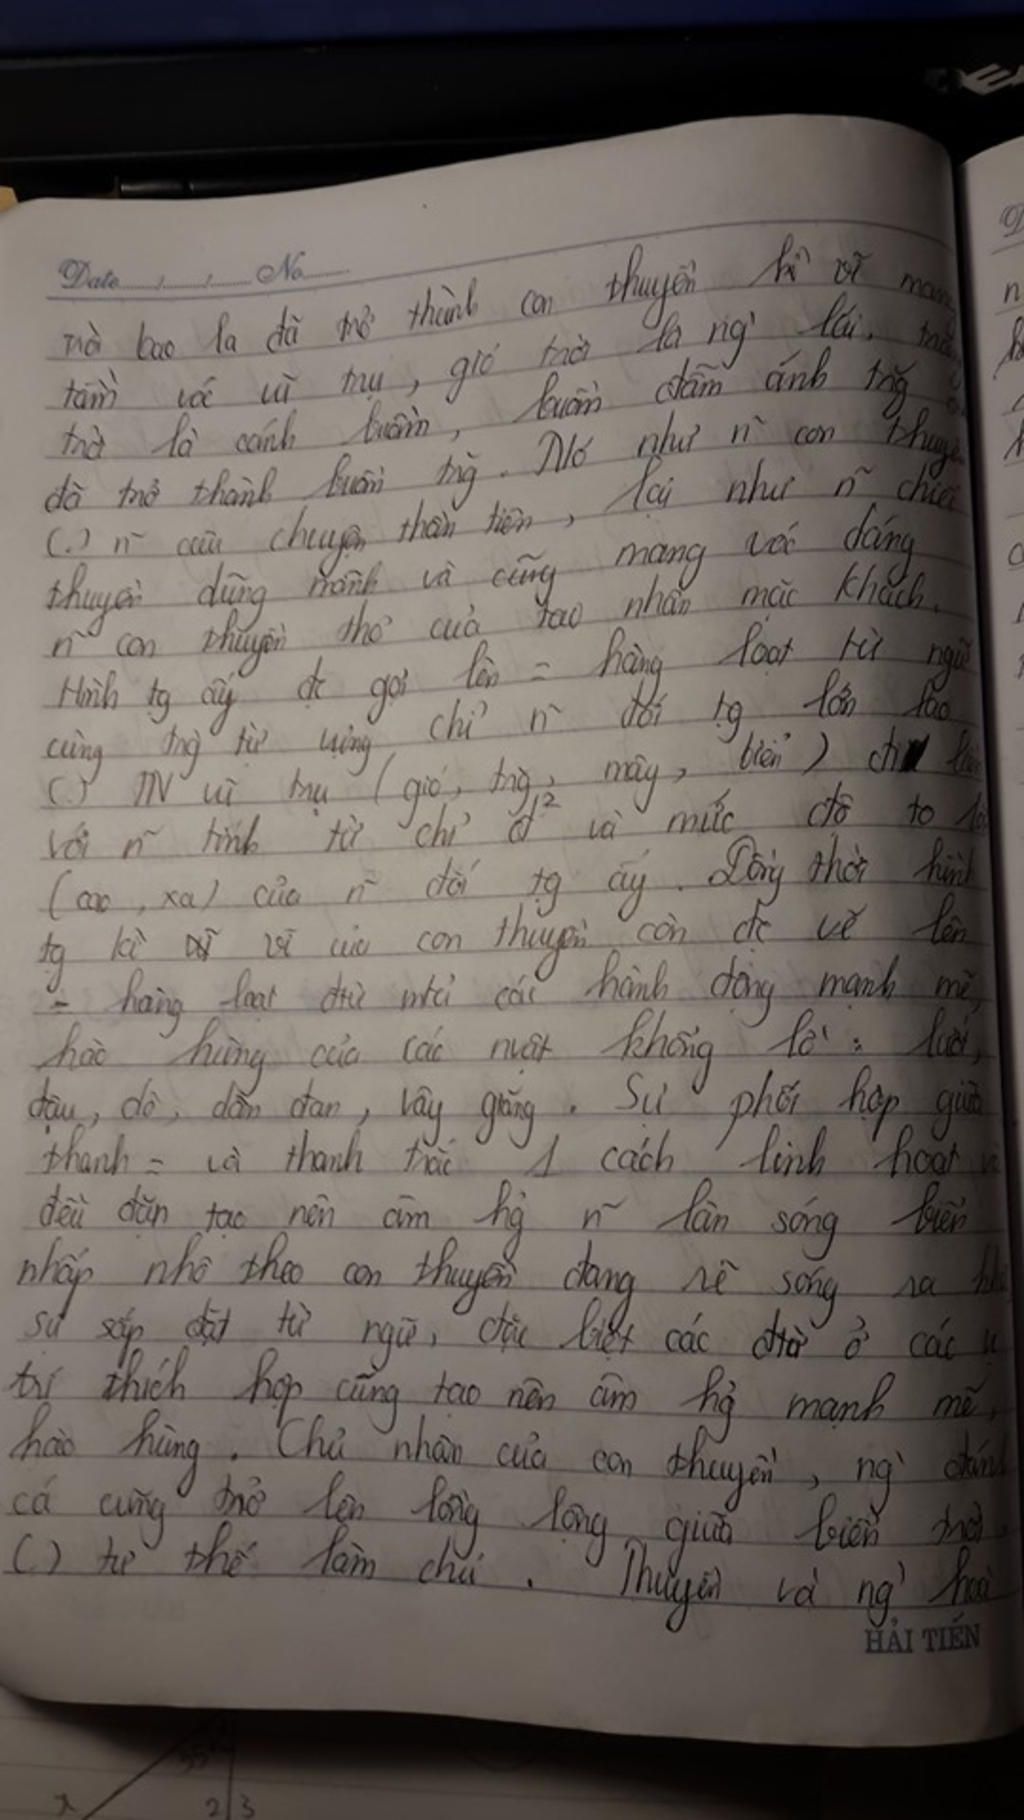 Date....../....../......No......
trời bao la đã trở thành con thuyền kì vĩ mang
tầm vóc vũ trụ, gió trời là ng' lái, trăng
trời là cánh buồm, buồm đẫm ánh trăg
đã trở thành buồm trăg. Nó như n~ con thuyền
(.) n~ câu chuyện thần tiên, lại như n~ chiếc
thuyền dũng mãnh và cũng mang vóc dáng
n~ con thuyền thơ của tao nhân mặc khách.
Hình tg ấy đc gợi lên = hàng loạt từ ngữ
cùng trg từ vựng chỉ n~ đối tg lớn lao
(.) TN vũ trụ (gió, trg, mây, biển) đi liền
với n~ tính từ chỉ đ² và mức độ to lớn
(cao, xa) của n~ đối tg ấy. Đồng thời hình
tg kì vĩ của con thuyền còn đc vẽ lên
= hàng loạt đtừ mtả các hành động mạnh mẽ,
hào hùng của các nvật khổng lồ: lướt,
đậu, dò, dàn đan, vây giăng. Sự phối hợp giữa
thanh = và thanh trắc 1 cách linh hoạt và
đều đặn tạo nên âm hg n~ làn sóng biển
nhấp nhô theo con thuyền đang rẽ sóng ra
sự sắp đặt từ ngữ, đặc biệt các đtừ ở các vị
trí thích hợp cũng tạo nên âm hg mạnh mẽ,
hào hùng. Chủ nhân của con thuyền, ng' đánh
cá cũng trở lên lồng lộng giữa biển trời
(.) tư thế làm chủ. Thuyền và ng' hoà
HẢI TIẾN
35°
x
2 3